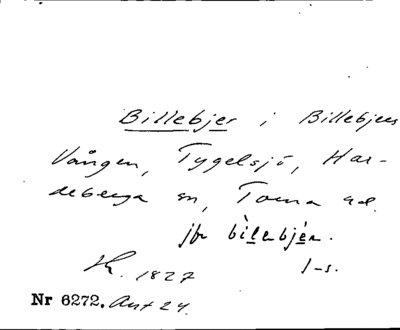 Billebjer i Billebjers
Vången, Tygelsjö, Har-
deberga sn, Torna hd.
jfr bìlebjér.
1827 1-s.
Nr 6272. Ant 24.